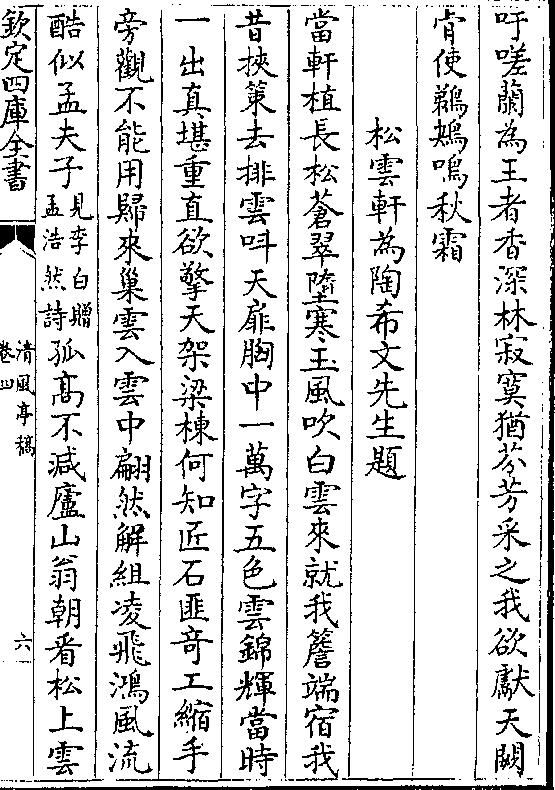 吁嗟蘭為王者香深林寂寞猶芬芳采之我欲獻天闕
肯使鵜鴂鳴秋霜
松雲軒為陶希文先生題
當軒植長松蒼翠墮寒玉風吹白雲來就我簷端宿我
昔挾策去排雲呌天扉胸中一萬字五色雲錦輝當時
一出真堪重直欲擎天架梁棟何知匠石匪竒工縮手
旁觀不能用歸來巢雲入雲中翩然解組凌飛鴻風流
酷似孟夫子見李白贈孟浩然詩孤高不减廬山翁朝看松上雲
欽定四庫全書
清風亭稿
卷四
六